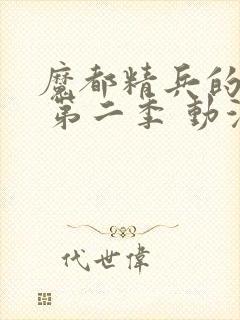 魔都精兵的
第二季 動漫
代世偉